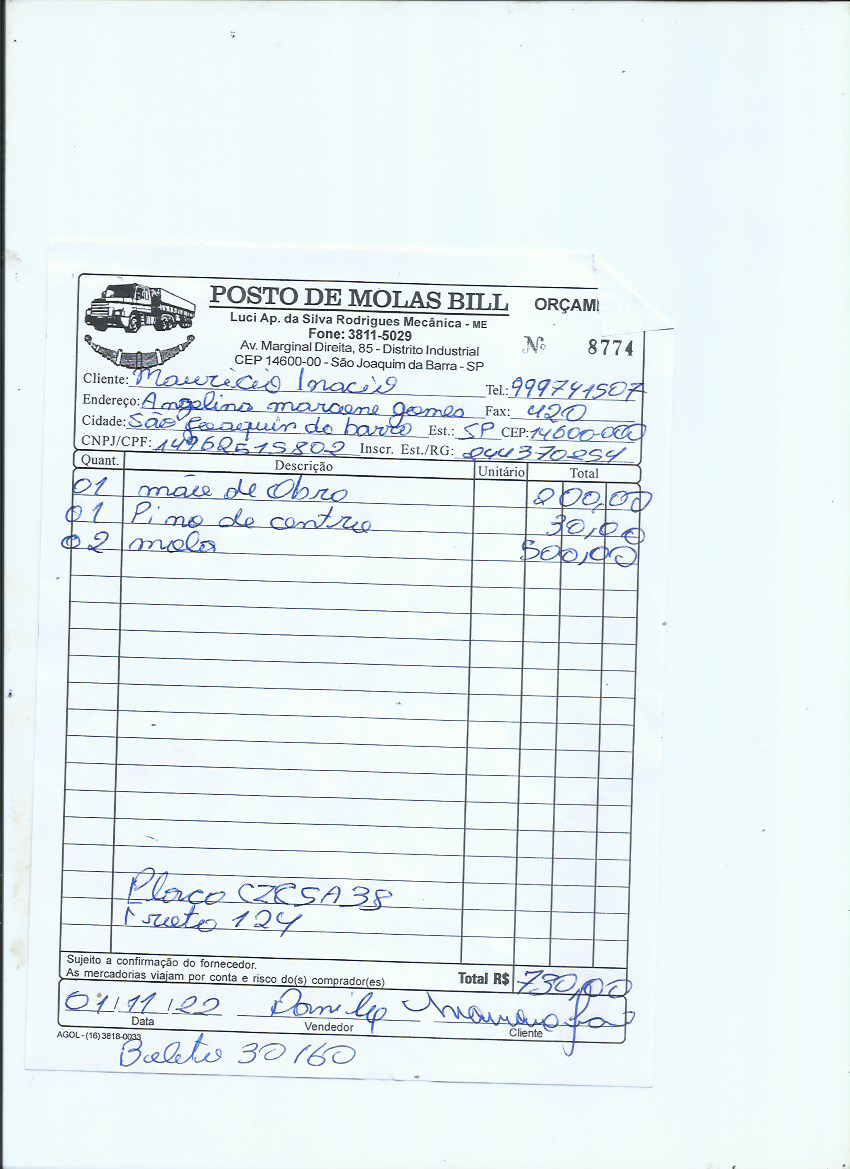 POSTO DE MOLAS BILL ORÇAM
Luci Ap. da Silva Rodrigues Mecânica - ME
Fone: 3811-5029
Av. Marginal Direita, 85 - Distrito Industrial
CEP 14600-00 - São Joaquim da Barra - SP
Nº 8774
Cliente: Mauricio Inacio Tel.: 999741507
Endereço: Angelino maraene gomes Fax: 420
Cidade: São Joaquin do barro Est.: SP CEP: 14600-000
CNPJ/CPF: 14962515802 Inscr. Est./RG: 244370254
Quant. Descrição Unitário Total
01 mãe de Obro 200,00
01 Pino de centro 30,00
02 mola 500,00
Placo CZC5A38
Frete 124
Sujeito a confirmação do fornecedor.
As mercadorias viajam por conta e risco do(s) comprador(es) Total R$ 730,00
01/11/22 Danilo
Data Vendedor Cliente
AGOL - (16) 3818-0033
Boleto 30/60